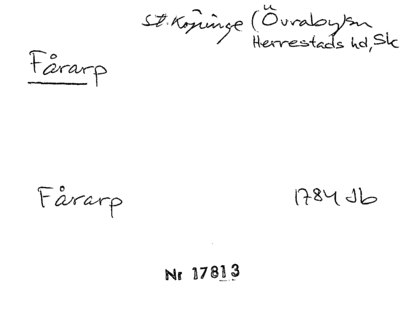 St. Köpinge (Övraby sn
Herrestads hd, Sk
Fårarp
Fårarp 1784 Jb
Nr 17813